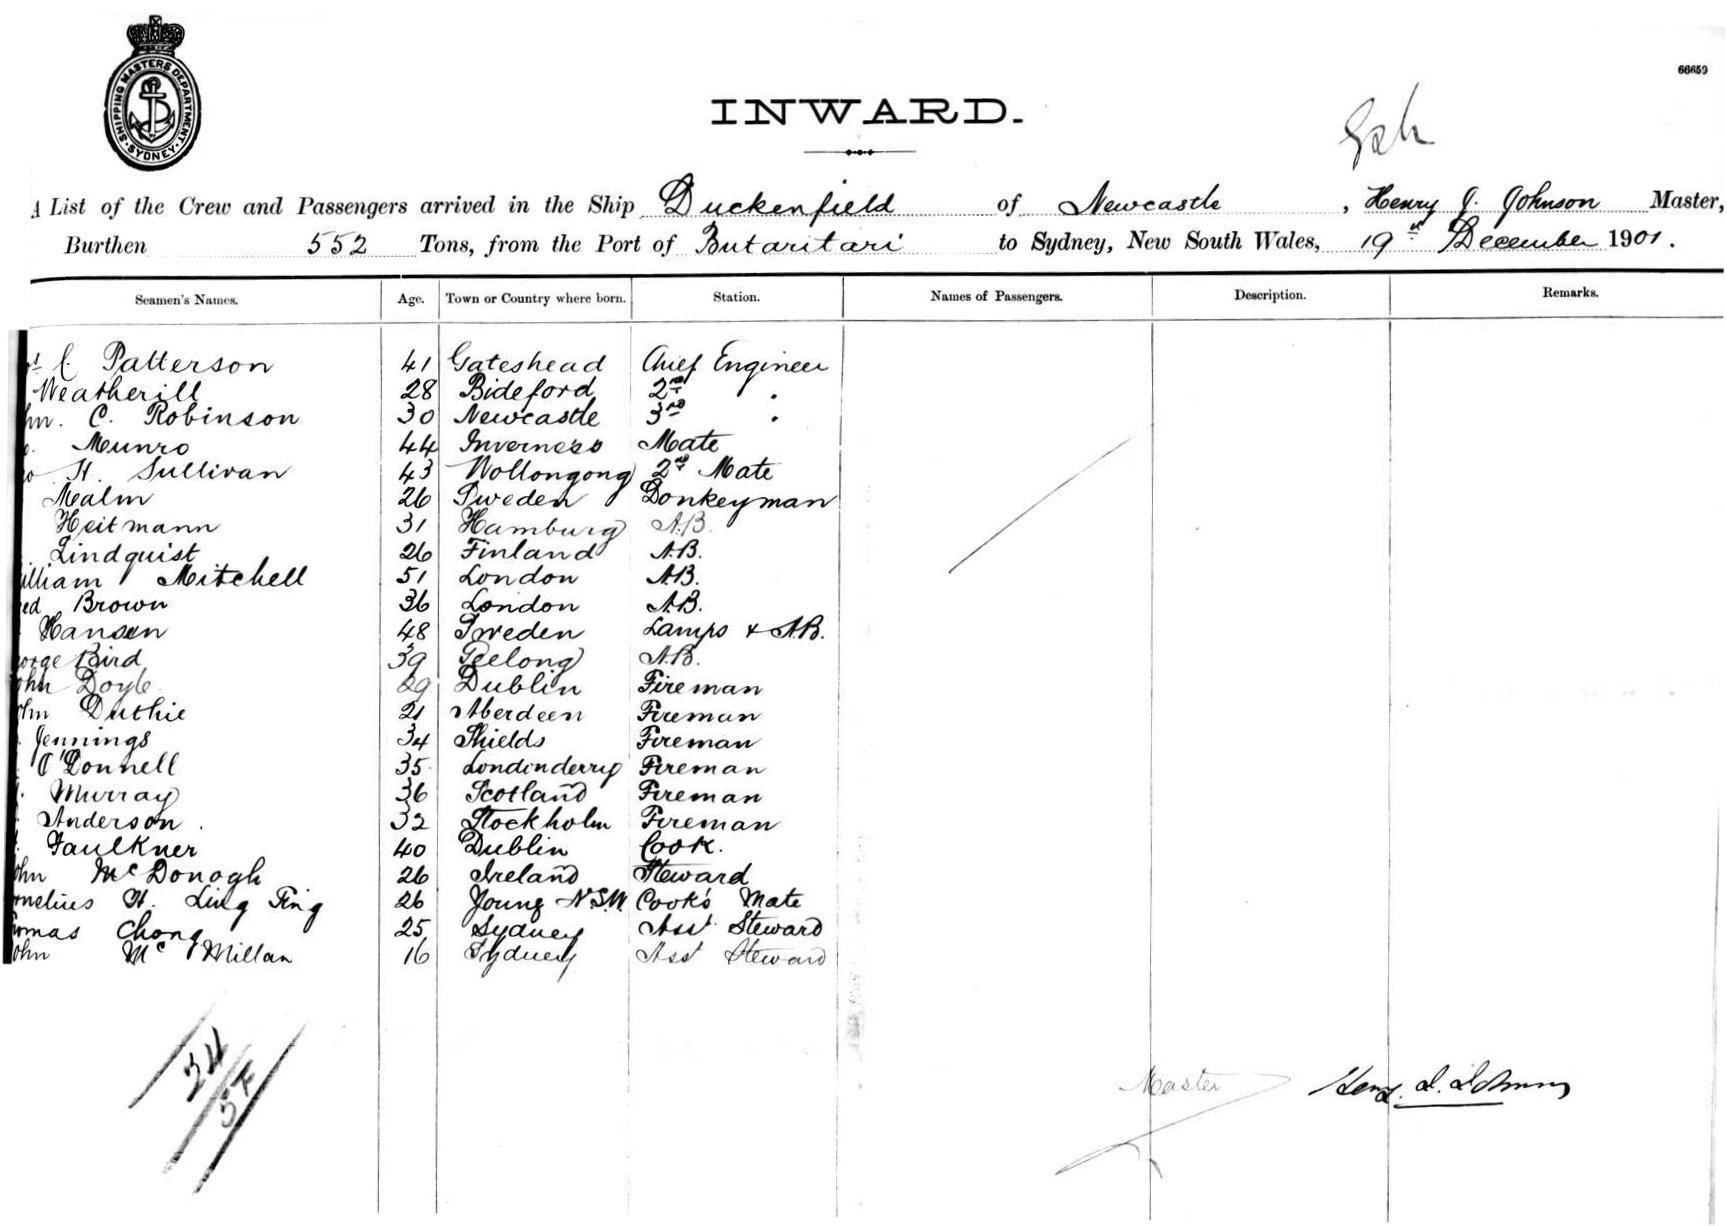 SHIPPING MASTERS DEPARTMENT
SYDNEY
66659
INWARD.
A List of the Crew and Passengers arrived in the Ship Duckenfield of Newcastle, Henry J. Johnson Master,
Burthen 552 Tons, from the Port of Butaritari to Sydney, New South Wales, 19th December 1901.
Seamen's Names. Age. Town or Country where born. Station. Names of Passengers. Description. Remarks.
Patterson 41 Gateshead Chief Engineer
Weatherill 28 Bideford 2nd "
hn. C. Robinson 30 Newcastle 3rd "
Munro 44 Inverness Mate
H. Sullivan 43 Wollongong 2nd Mate
Malm 26 Sweden Donkeyman
Heitmann 31 Hamburg A.B.
Lindquist 26 Finland A.B.
illiam Mitchell 51 London A.B.
ed Brown 36 London A.B.
Hansen 48 Sweden Lamps & A.B.
orge Bird 39 Geelong A.B.
ohn Doyle 29 Dublin Fireman
ohn Duthie 21 Aberdeen Fireman
Jennings 34 Shields Fireman
O'Donnell 35 Londonderry Fireman
Murray 36 Scotland Fireman
Anderson 32 Stockholm Fireman
Faulkner 40 Dublin Cook.
ohn McDonogh 26 Ireland Steward
rnelius H. Ling Ting 26 Young N.S.W Cook's Mate
omas Chong 25 Sydney Asst Steward
ohn McMillan 16 Sydney Asst Steward
24
Master Henry J. Johnson